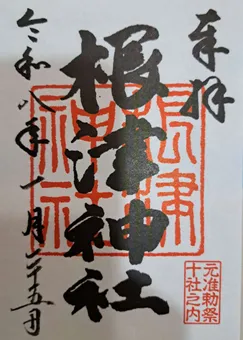 奉拝
根津神社
根津神社
元准勅祭
十社之内
令和八年十月二十五日